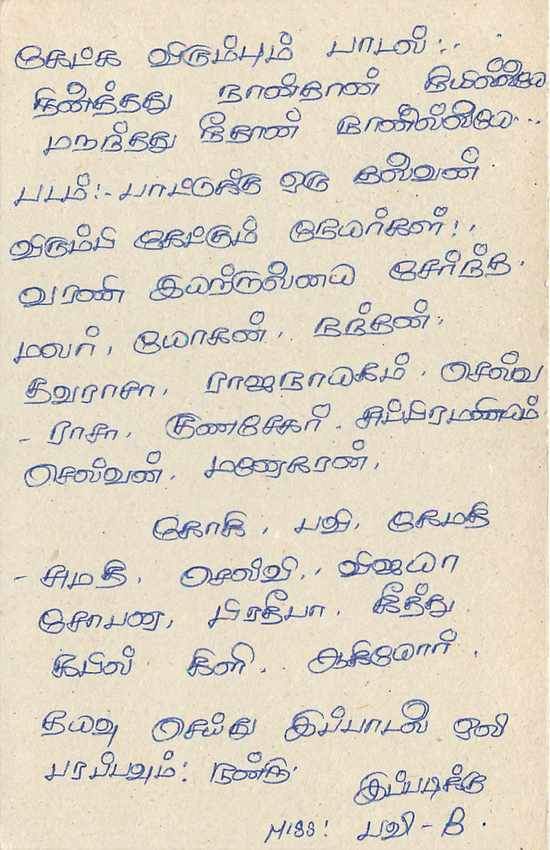 கேட்க விரும்பும் பாடல்:..
நினைத்தது நான்தான்
மறந்தது நீதான்
படம்:- பாட்டுக்கு ஒரு தலைவன்
விரும்பி கேட்கும் நேயர்கள்:.
வரணி இயற்றாலையை சேர்ந்த.
மலர், யோகன், நந்தன்,
தவராசா, ராஜநாயகம், செல்வ
- ராசா, குணசேகர். சுப்பிரமணியம்.
செல்வன், மனோகரன்,
கோகி, பவி, கேமதி
- சுமதி, செல்வி, விஜயா
சோபனா, பிரதீபா, கீத்து
கபில் கிளி. ஆகியோர்.
தயவு செய்து இப்பாடலை ஒலி
பரப்பவும்: நன்றி.
இப்படிக்கு
MISS! பவி - B.